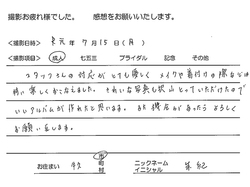 撮影お疲れ様でした。　感想をお願いいたします。
<撮影日時>　元年 7月 15日 (月)
<撮影項目>　成人　七五三　ブライダル　記念　その他
スタッフさんの対応がとても優しく メイクや着付けの際なども
楽しかったです。きれいな写真も沢山とっていただけたので
いいアルバムが作れたと思います。また機会があったらよろしく
お願いします。
お住まい　市町村　ニックネーム イニシャル